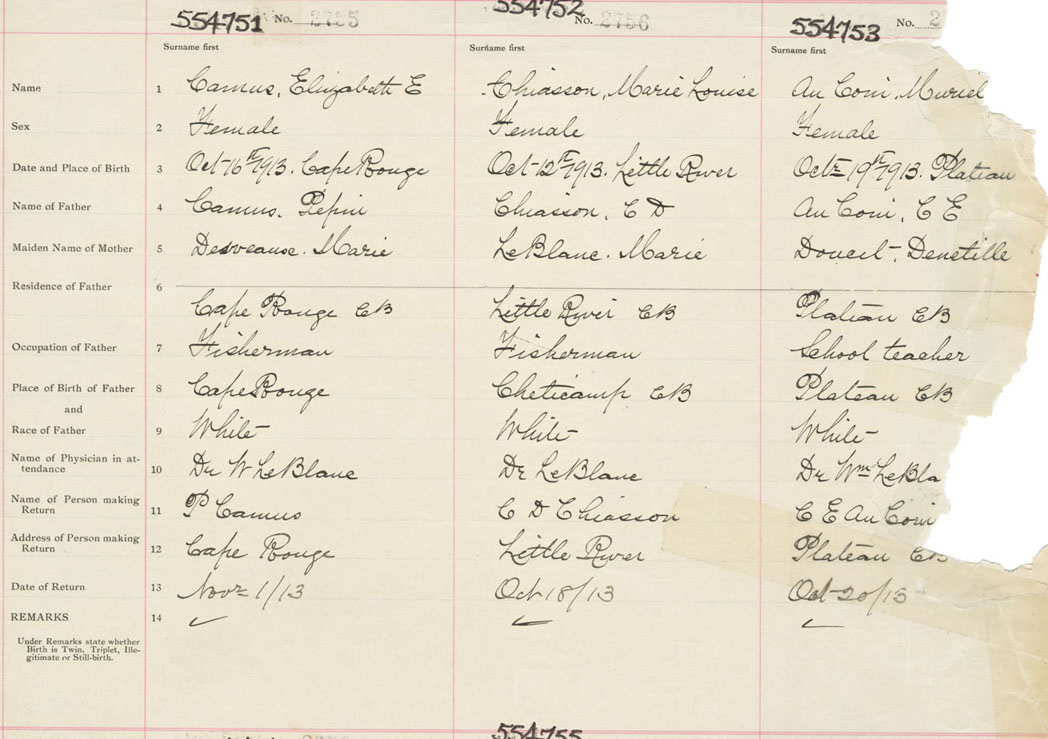 554751 No. 2755
554752 No. 2756
554753 No. 2
Surname first Surname first Surname first
Name 1 Camus, Elizabeth E Chiasson, Marie Louise Au Coin, Muriel
Sex 2 Female Female Female
Date and Place of Birth 3 Oct 16th 1913. Cape Rouge Oct 12th 1913. Little River Oct 19th 1913. Plateau
Name of Father 4 Camus. Pepin Chiasson, C D Au Coin, C E
Maiden Name of Mother 5 Desveause. Marie LeBlanc. Marie Doucet, Denetille
Residence of Father 6
Cape Rouge CB Little River CB Plateau CB
Occupation of Father 7 Fisherman Fisherman School teacher
Place of Birth of Father 8 Cape Rouge Cheticamp CB Plateau CB
and
Race of Father 9 White White White
Name of Physician in at-
tendance 10 Dr W LeBlanc Dr LeBlanc Dr Wm LeBla
Name of Person making
Return 11 P Camus C D Chiasson C E Au Coin
Address of Person making
Return 12 Cape Rouge Little River Plateau CB
Date of Return 13 Nov 1/13 Oct 18/13 Oct 20/13
REMARKS 14
Under Remarks state whether
Birth is Twin, Triplet, Ille-
gitimate or Still-birth.
554755